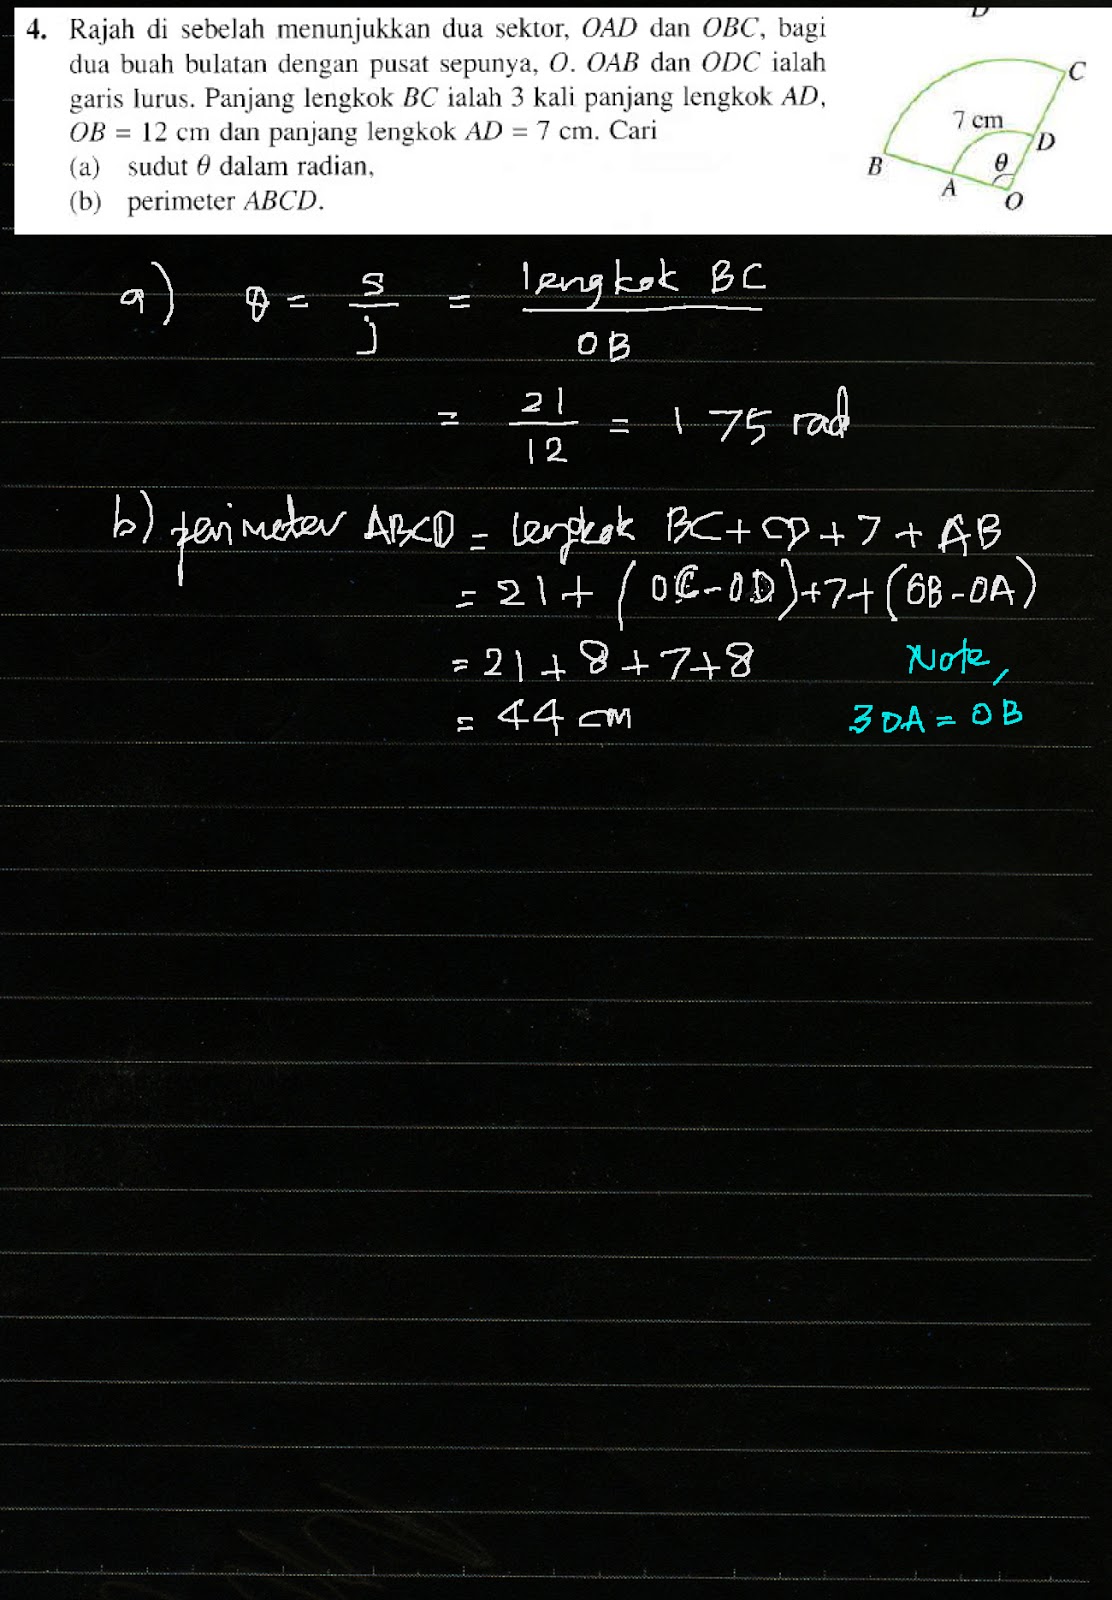 4. Rajah di sebelah menunjukkan dua sektor, OAD dan OBC, bagi
dua buah bulatan dengan pusat sepunya, O. OAB dan ODC ialah
garis lurus. Panjang lengkok BC ialah 3 kali panjang lengkok AD,
OB = 12 cm dan panjang lengkok AD = 7 cm. Cari
(a) sudut θ dalam radian,
(b) perimeter ABCD.
C
7 cm
D
B
θ
A
O
a) θ = s/j = lengkok BC / OB
= 21/12 = 1 75 rad
b) perimeter ABCD = lengkok BC + CD + 7 + AB
= 21 + (OC - OD) + 7 + (OB - OA)
= 21 + 8 + 7 + 8
Note,
= 44 cm
3 OA = OB